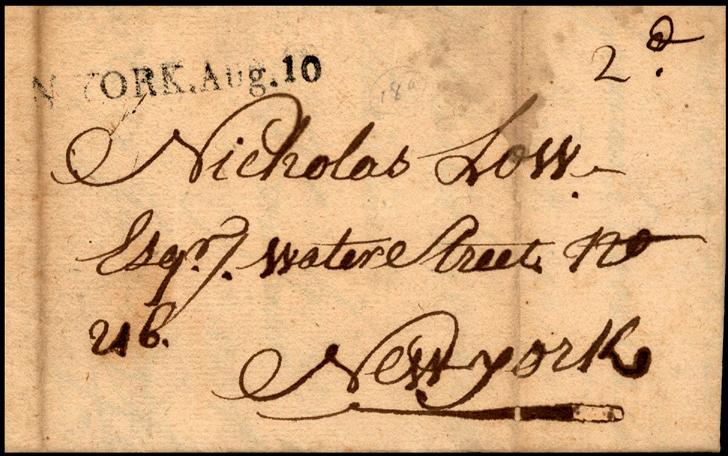 N. YORK. Aug. 10
2d.
Nicholas Low.
Esqr. Water Street. No
216.
New york